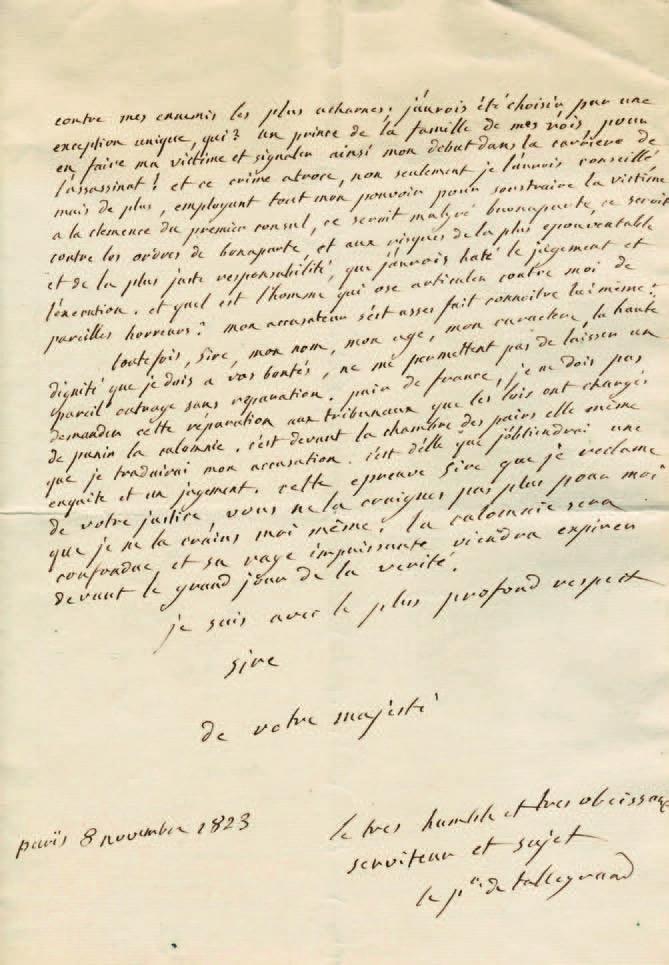 contre mes ennemis les plus acharnés. j'aurois été choisir par une
exception unique, qui? un prince de la famille de mes rois, pour
en faire ma victime et signaler ainsi mon debut dans la carriere de
l'assassinat! et ce crime atroce, non seulement je l'aurois conseillé
mais de plus, employant tout mon pouvoir pour soustraire la victime
a la clemence du premier consul, ce seroit malgré buonaparte, ce seroit
contre les ordres de bonaparte, et aux risques de la plus epouventable
et de la plus juste responsabilité, que j'aurois haté le jugement et
l'execution. et quel est l'homme qui ose articuler contre moi de
pareilles horreurs? mon accusateur s'est asses fait connoitre lui même.
toutefois, sire, mon nom, mon age, mon caractere, la haute
dignité que je dois a vos bontés, ne me permettent pas de laisser un
pareil outrage sans reparation. pair de france, je ne dois pas
demander cette réparation aux tribunaux que les lois ont chargés
de punir la calomnie. c'est devant la chambre des pairs elle même
que je traduirai mon accusation. c'est d'elle que j'obtiendrai une
enquite et un jugement. cette epreuve sire que je reclame
de votre justice vous ne la craignes pas plus pour moi
que je ne la crains moi même. la calomnie sera
confondue, et sa rage impuissante viendra expirer
devant le grand jour de la verité.
je suis avec le plus profond respect
sire
de votre majesté
le tres humble et tres obeissant
paris 8 novembre 1823
serviteur et sujet
le p<sup>ce</sup> de talleyrand